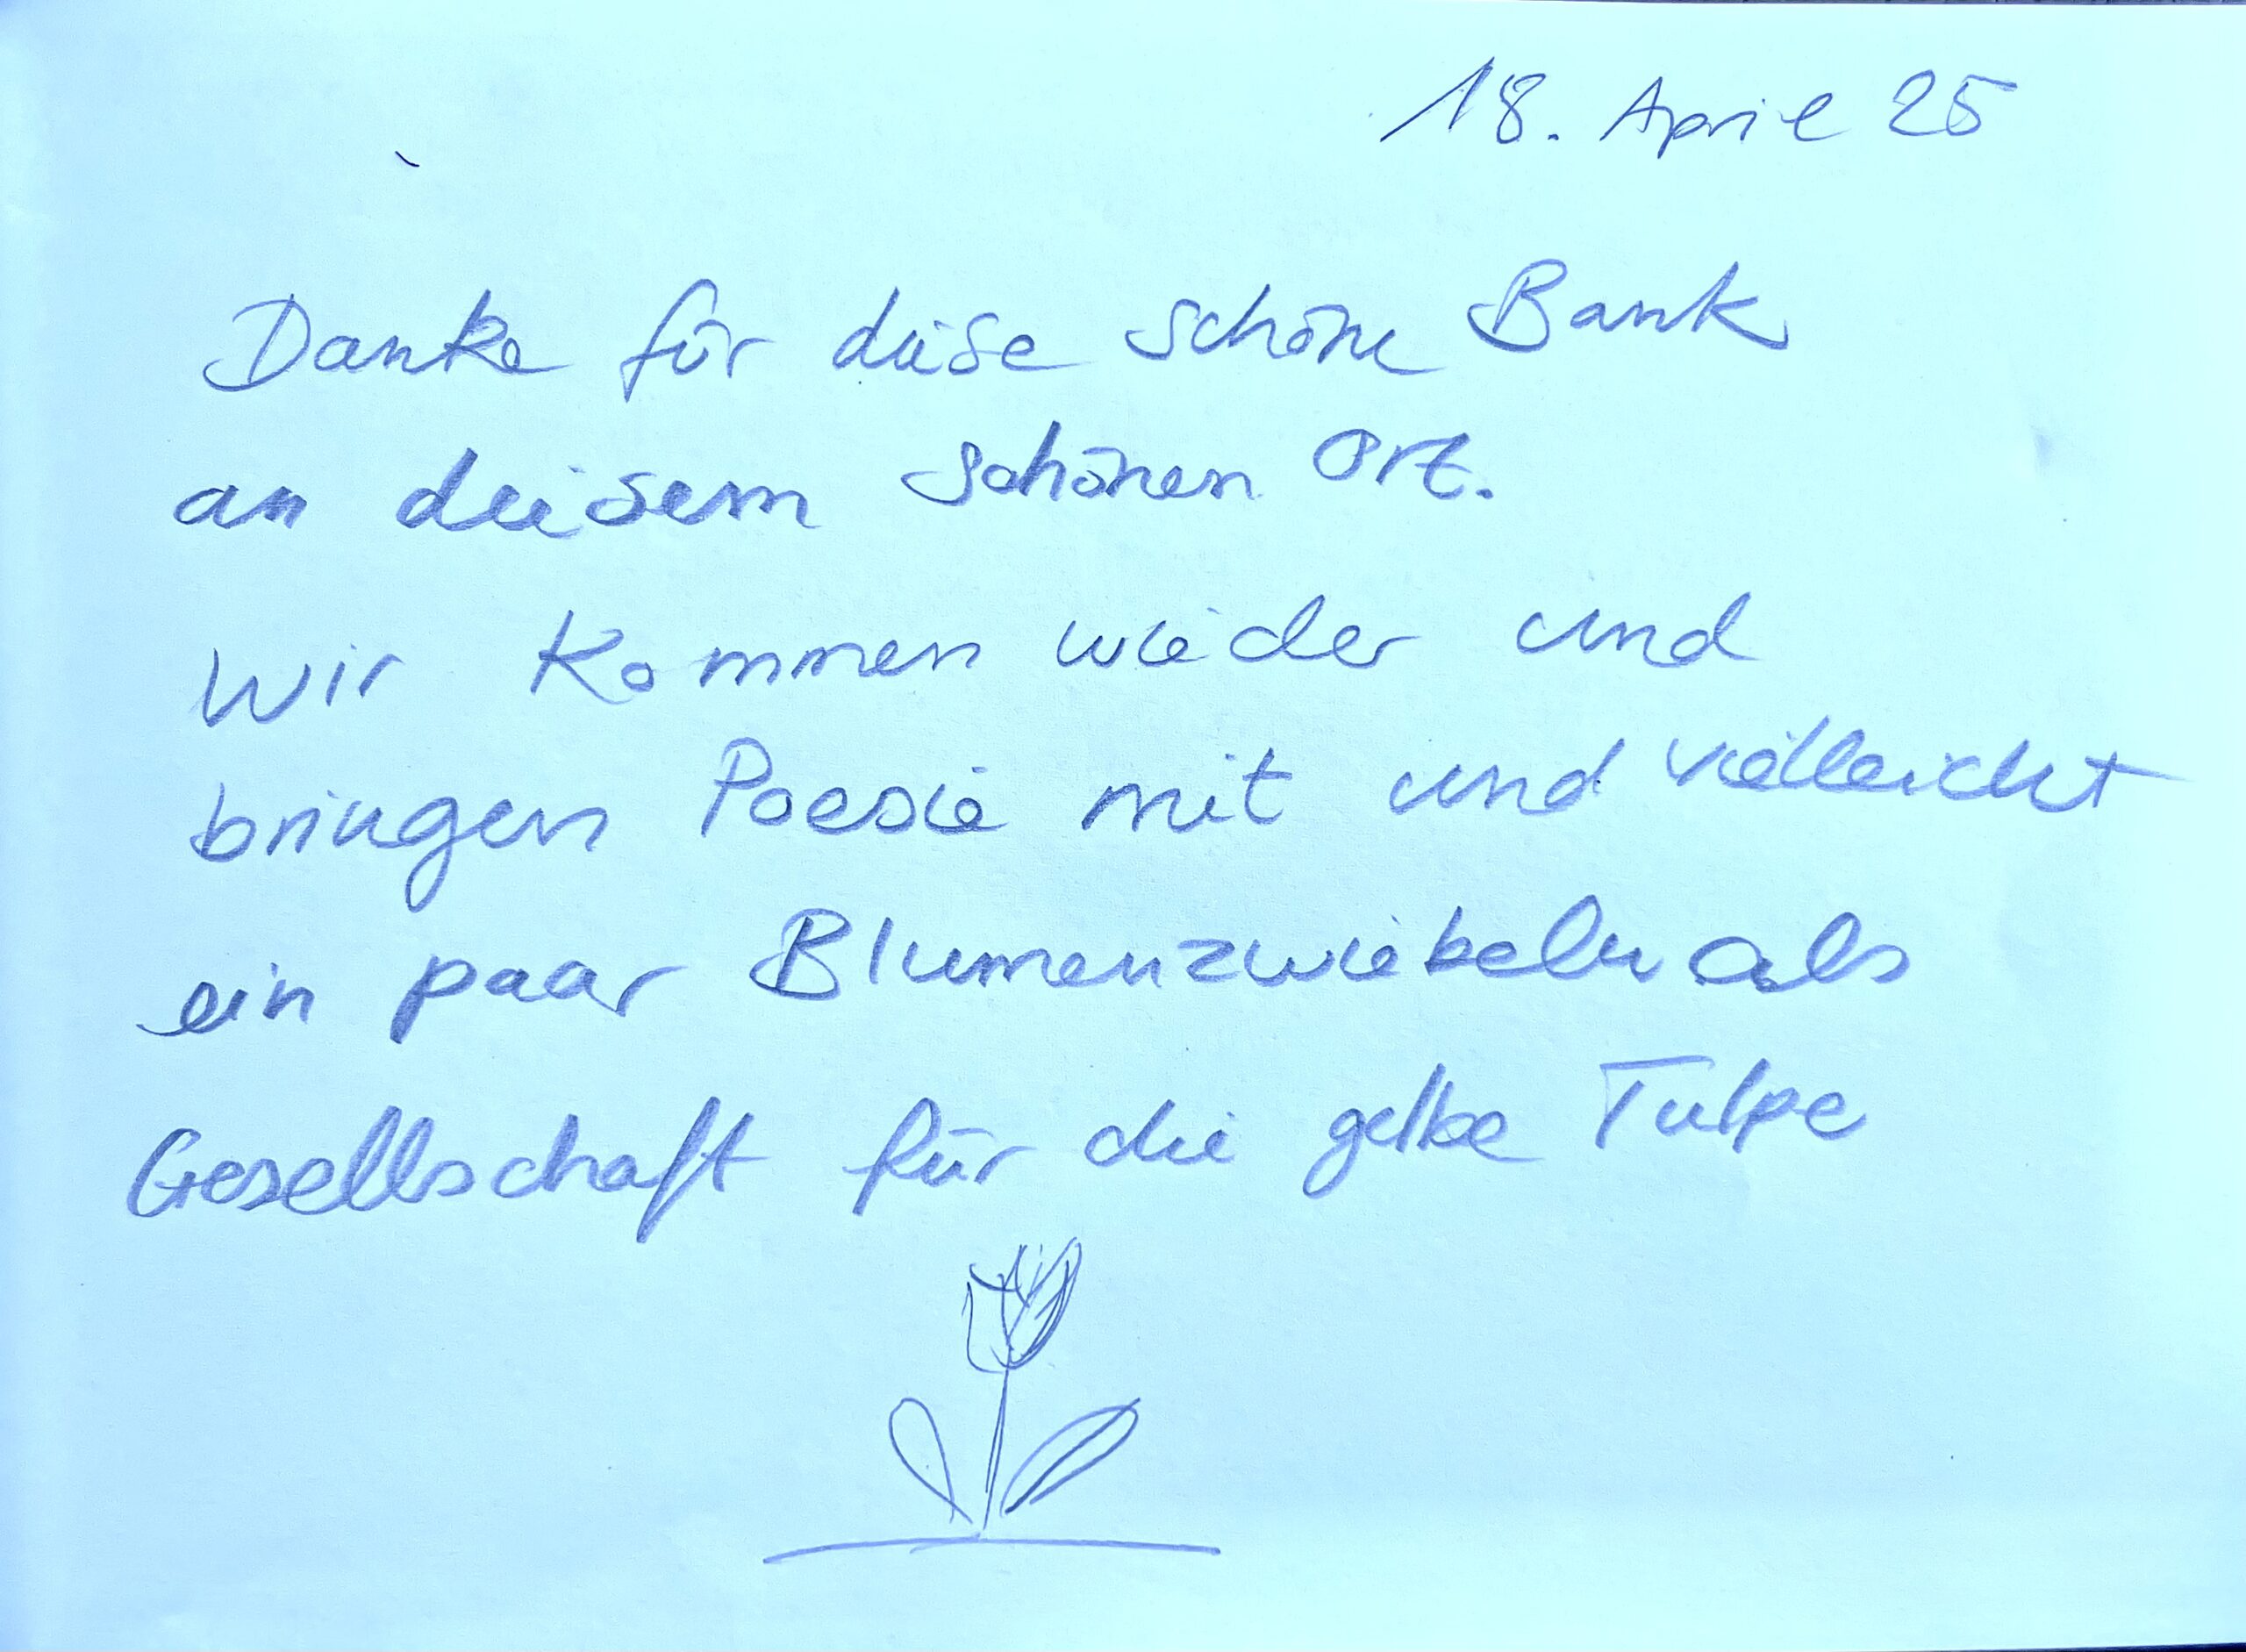 18. April 25
Danke für diese schöne Bank
an diesem schönen Ort.
Wir kommen wieder und
bringen Poesie mit und vielleicht
ein paar Blumenzwiebeln als
Gesellschaft für die gelbe Tulpe